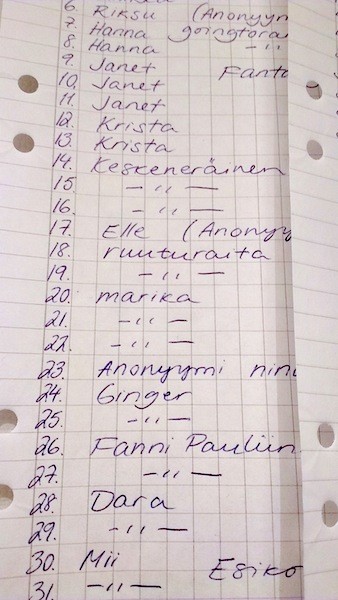 6. Riksu (Anonyym
7. Hanna goingtora
8. Hanna -"-
9. Janet Fanta
10. Janet
11. Janet
12. Krista
13. Krista
14. Keskeneräinen
15. -"-
16. -"-
17. Elle (Anonyy
18. ruuturaita
19. -"-
20. marika
21. -"-
22. -"-
23. Anonyymi nim
24. Ginger
25. -"-
26. Fanni Pauliin
27. -"-
28. Dara
29. -"-
30. Mii Esiko
31. -"-